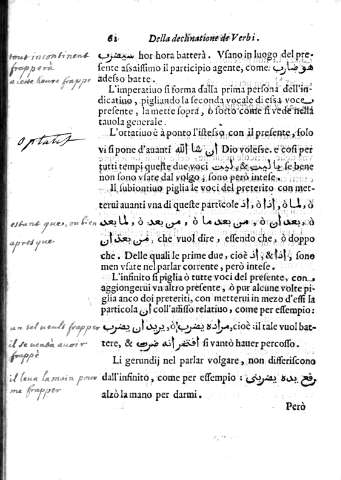 62 Della declinatione de Verbi.
سيضرب hor hora batterà. Vsano in luogo del pre-
sente assaissimo il participio agente, come هوضارب
adesso batte.
L'imperatiuo si forma dalla prima persona dell'in-
dicatiuo, pigliando la seconda vocale di essa voce
presente, la mette sopra, ò sotto come si vede nella
tauola generale.
L'ottatiuo è à ponto l'istesso con il presente, solo
vi si pone d'auanti ان شا الله Dio volesse. e così per
tutti tempi queste due voci يا ليت, & ليت se bene
non sono vsate dal volgo, sono però intese.
Il subiontiuo piglia le voci del preterito con met-
terui auanti vna di queste particole اذ, ò اذا, ò لما, ò
ò بعد, ò من بعد ما, ò من بعد, ò لما بعد
من بعد ان, che vuol dire, essendo che, ò doppo
che. Delle quali le prime due, cioè اذ, & اذا, sono
men vsate nel parlar corrente, però intese.
L'infinito si piglia ò tutte voci del presente, con
aggiongerui va altro presente, ò pur alcune volte pi-
glia anco dei preteriti, con metterui in mezo d'essi la
particola ان coll'affisso relatiuo, come per essempio:
يريد ان يضرب, ò مراده يضرب, cioè il tale vuol bat-
tere, & افتخر انه ضرب si vantò hauer percosso.
Li gerundij nel parlar volgare, non differiscono
dall'infinito, come per essempio: رفع يده يضربني
alzò la mano per darmi.
Però
tout incontinent
frappera
a ceste heure frappe
Optatif
estant que, ou bien
apres que
un tel veult frapper
il se vanta avoir
frappé
il leva la main pour
me frapper